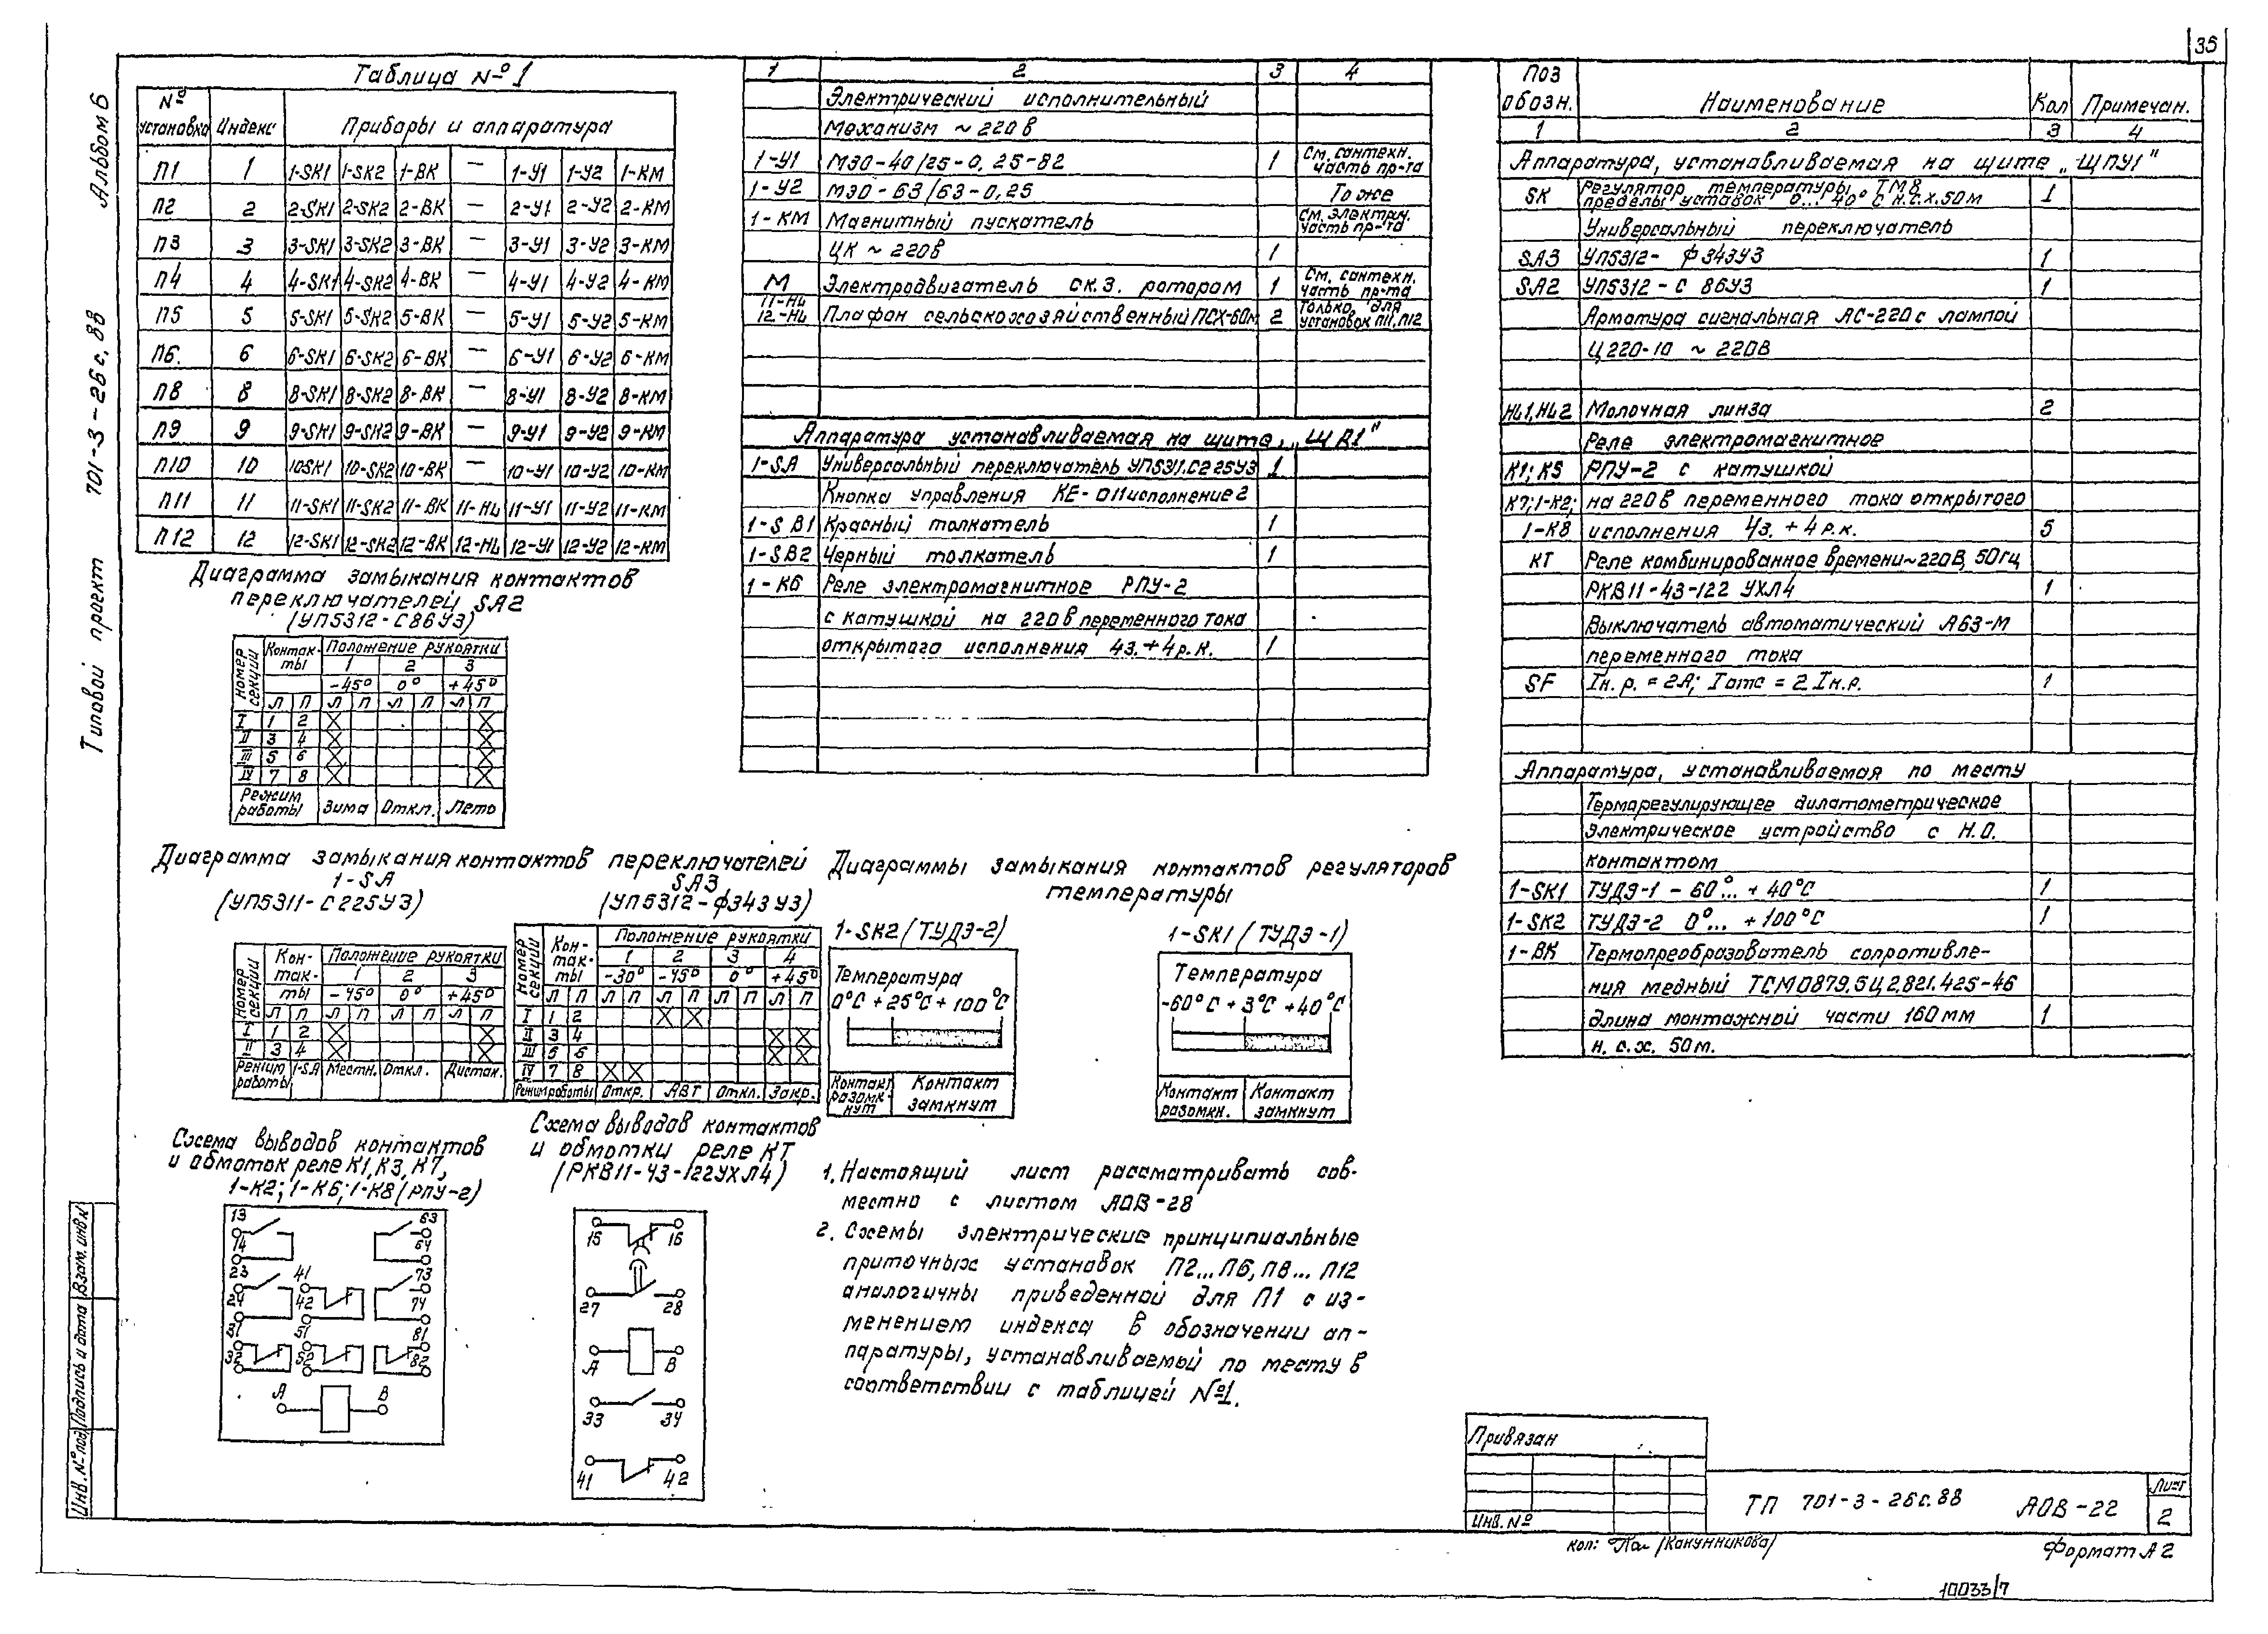 35
Альбом 6
Типовой проект 701-3-26с.88
Таблица №1
№ установка Индекс Приборы и аппаратура
П1 1 1-SK1 1-SK2 1-ВК — 1-У1 1-У2 1-КМ
П2 2 2-SK1 2-SK2 2-ВК — 2-У1 2-У2 2-КМ
П3 3 3-SK1 3-SK2 3-ВК — 3-У1 3-У2 3-КМ
П4 4 4-SK1 4-SK2 4-ВК — 4-У1 4-У2 4-КМ
П5 5 5-SK1 5-SK2 5-ВК — 5-У1 5-У2 5-КМ
П6. 6 6-SK1 6-SK2 6-ВК — 6-У1 6-У2 6-КМ
П8 8 8-SK1 8-SK2 8-ВК — 8-У1 8-У2 8-КМ
П9 9 9-SK1 9-SK2 9-ВК — 9-У1 9-У2 9-КМ
П10 10 10SK1 10-SK2 10-ВК — 10-У1 10-У2 10-КМ
П11 11 11-SK1 11-SK2 11-ВК 11-HL 11-У1 11-У2 11-КМ
П12 12 12-SK1 12-SK2 12-ВК 12-HL 12-У1 12-У2 12-КМ
Диаграмма замыкания контактов
переключателей SA2
(УП5312-С86У3)
Номер секции Контакты Положение рукоятки
1 2 3
-45° 0° +45°
Л П Л П Л П Л П
I 1 2 X X
II 3 4 X X
III 5 6 X X
IV 7 8 X X
Режим работы Зима Откл. Лето
Диаграмма замыкания контактов переключателей
1-SA
(УП5311-С225У3)
SA3
(УП5312-Ф343У3)
Номер секции Контакты Положение рукоятки
1 2 3
-45° 0° +45°
Л П Л П Л П Л П
I 1 2 X X
II 3 4 X X
Режим работы 1-SA Местн. Откл. Дистан.
Номер секции Контакты Положение рукоятки
1 2 3 4
-30° -45° 0° +45°
Л П Л П Л П Л П Л П
I 1 2 X X
II 3 4 X X
III 5 6 X X
IV 7 8 X X
Режим работы Откр. АВТ Откл. Закр.
Диаграммы замыкания контактов регуляторов
температуры
1-SK2 (ТУДЭ-2)
Температура
0°С +25°С +100°С
Контакт разомкнут Контакт замкнут
1-SK1 (ТУДЭ-1)
Температура
-60°С +3°С +40°С
Контакт разомкн. Контакт замкнут
Схема выводов контактов
и обмоток реле К1, К3, К7,
1-К2; 1-К6; 1-К8 (РПУ-2)
13 63
14 64
23 41 73
24 42 74
31 51 81
32 52 82
А В
Схема выводов контактов
и обмотки реле КТ
(РКВ11-43-122УХЛ4)
15 16
27 28
А В
33 34
41 42
1. Настоящий лист рассматривать сов-
местно с листом АОВ-28
2. Схемы электрические принципиальные
приточных установок П2...П6, П8...П12
аналогичны приведенной для П1 с из-
менением индекса в обозначении ап-
паратуры, устанавливаемой по месту в
соответствии с таблицей №1.
1 2 3 4
Электрический исполнительный
механизм ~220в
1-У1 МЭО-40/25-0,25-82 1 См. сантехн. часть пр-та
1-У2 МЭО-63/63-0,25 То же
1-КМ Магнитный пускатель См. электрич. часть пр-та
ЦК ~220в 1
М Электродвигатель с к.з. ротором 1 См. сантехн. часть пр-та
11-HL 12-HL Плафон сельскохозяйственный ПСХ-60м 2 Только для установок П11, П12
Аппаратура устанавливаемая на щите „ЩВ1"
1-SA Универсальный переключатель УП5311.С225У3 1
Кнопка управления КЕ-011 исполнение 2
1-SВ1 Красный толкатель 1
1-SВ2 Черный толкатель 1
1-К6 Реле электромагнитное РПУ-2
с катушкой на 220в переменного тока
открытого исполнения 4з.+4р.к. 1
Поз обозн. Наименование Кол Примечан.
1 2 3 4
Аппаратура, устанавливаемая на щите „ЩПУ1"
SK Регулятор температуры ТМ8 1
пределы уставок 0...40°С н.с.х.50м
Универсальный переключатель
SA3 УП5312-Ф343У3 1
SA2 УП5312-С86У3 1
Арматура сигнальная АС-220 с лампой
Ц220-10 ~220В
HL1, HL2 Молочная линза 2
Реле электромагнитное
К1; К3 РПУ-2 с катушкой
К7; 1-К2; на 220в переменного тока открытого
1-К8 исполнения 4з.+4р.к. 5
КТ Реле комбинированное времени~220В, 50гц
РКВ11-43-122 УХЛ4 1
Выключатель автоматический А63-М
переменного тока
SF Iн.р.=2А; Iотс=2 Iн.р. 1
Аппаратура, устанавливаемая по месту
Терморегулирующее дилатометрическое
электрическое устройство с Н.О.
контактом
1-SK1 ТУДЭ-1 -60°...+40°С 1
1-SK2 ТУДЭ-2 0°...+100°С 1
1-ВК Термопреобразователь сопротивле-
ния медный ТСМ0879.5Ц2.821.425-46
длина монтажной части 160мм 1
н.с.х. 50м.
Привязан
Инв.№
ТП 701-3-26с.88 АОВ-22
Лист
2
кол: (Канунникова)
Формат А2
10033/7
Инв.№ под Подпись и дата Взам.инв.№